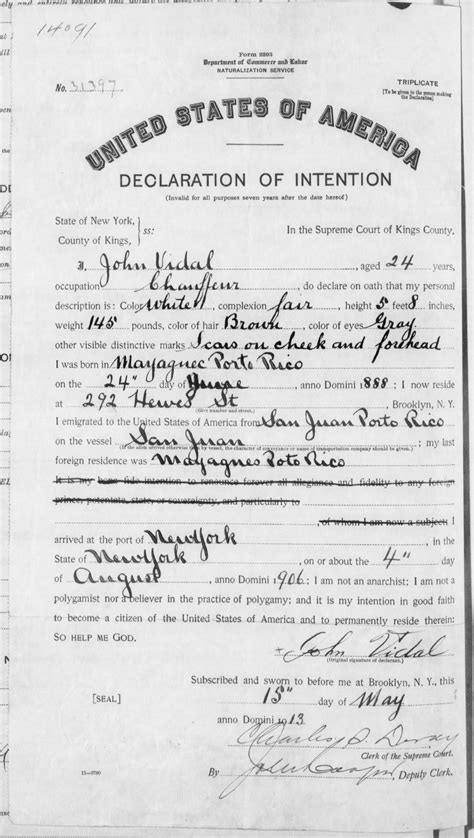 14091
Form 2203
Department of Commerce and Labor
NATURALIZATION SERVICE
No. 31397
TRIPLICATE
[To be given to the person making the Declaration]
UNITED STATES OF AMERICA
DECLARATION OF INTENTION
(Invalid for all purposes seven years after the date hereof)
State of New York,
County of Kings,
ss:
In the Supreme Court of Kings County.
I, John Vidal, aged 24 years,
occupation Chauffeur, do declare on oath that my personal
description is: Color White, complexion fair, height 5 feet 8 inches,
weight 145 pounds, color of hair Brown, color of eyes Gray
other visible distinctive marks Scars on cheek and forehead
I was born in Mayaguec Porto Rico
on the 24" day of June, anno Domini 1888; I now reside
at 292 Hewes St, Brooklyn, N. Y.
(Give number and street.)
I emigrated to the United States of America from San Juan Porto Rico
on the vessel San Juan; my last
(If the alien arrived otherwise than by vessel, the character of conveyance or name of transportation company should be given.)
foreign residence was Mayagues Poto Rico
It is my bona fide intention to renounce forever all allegiance and fidelity to any foreign
prince, potentate, state, or sovereignty, and particularly to
of whom I am now a subject; I
arrived at the port of New York, in the
State of New York, on or about the 4" day
of August, anno Domini 1906; I am not an anarchist; I am not a
polygamist nor a believer in the practice of polygamy; and it is my intention in good faith
to become a citizen of the United States of America and to permanently reside therein:
SO HELP ME GOD.
John Vidal
(Original signature of declarant.)
Subscribed and sworn to before me at Brooklyn, N. Y., this
[SEAL]
15" day of May
anno Domini 1913
Clerk of the Supreme Court.
By, Deputy Clerk.